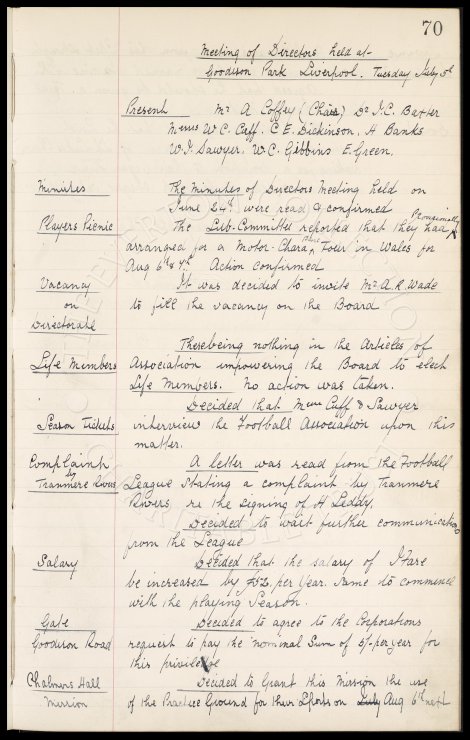 70
Meeting of Directors held at
Goodison Park Liverpool. Tuesday July 5th
Present Mr A Coffey (Chair) Dr J.C. Baxter
Messrs W.C. Cuff. C.E. Dickinson. H Banks
W.J. Sawyer. W.C. Gibbins E. Green.
Minutes The Minutes of Directors Meeting held on
June 24th were read & confirmed
Players Picnic The Sub-Committee reported that they had Provisionally
arranged for a Motor-Chara Tour in Wales for
Aug 6th & 7th Action confirmed
Vacancy on Directorate It was decided to invite Mr A.R. Wade
to fill the vacancy on the Board
There being nothing in the Articles of
Life Members Association empowering the Board to elect
Life Members. No action was taken.
Decided that Messrs Cuff & Sawyer
Season Tickets interview the Football Association upon this
matter.
Complaint A letter was read from the Football
Tranmere Rovers League stating a complaint by Tranmere
Rovers re the signing of H Leddy.
Decided to wait further communication
from the League
Salary Decided that the salary of I Fare
be increased by £52, per year. Same to commence
with the playing Season.
Gate Decided to agree to the Corporations
Goodison Road request to pay the nominal Sum of 5/- per year for
this privilege
Chalmers Hall Decided to Grant this Mission the use
Mission of the Practice Ground for their Sports on July Aug 6th next